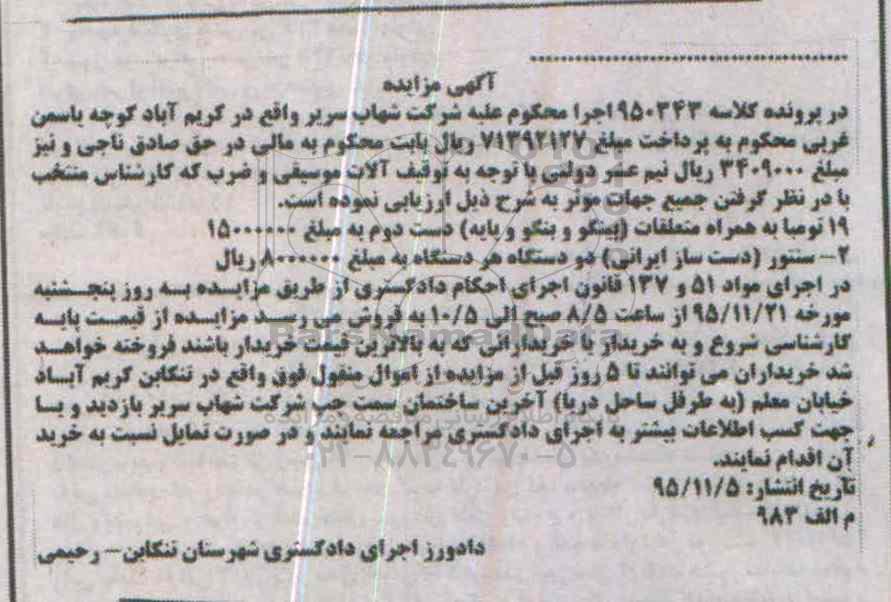 آگهی مزایده
در پرونده کلاسه ۹۵۰۳۴۳ اجرا محکوم علیه شرکت شهاب سریر واقع در کریم آباد کوچه یاسمن
غربی محکوم به پرداخت مبلغ ۷۱۳۹۲۱۲۷ ریال بابت محکوم به مالی در حق صادق ناجی و نیز
مبلغ ۳۴۰۹۰۰۰ ریال نیم عشر دولتی با توجه به توقیف آلات موسیقی و ضرب که کارشناس منتخب
با در نظر گرفتن جمیع جهات موثر به شرح ذیل ارزیابی نموده است.
۱۹ تومبا به همراه متعلقات (پینگو و بنگو و پایه) دست دوم به مبلغ ۱۵۰۰۰۰۰۰
۲- سنتور (دست ساز ایرانی) دو دستگاه هر دستگاه به مبلغ ۸۰۰۰۰۰۰ ریال
در اجرای مواد ۵۱ و ۱۳۷ قانون اجرای احکام دادگستری از طریق مزایده به روز پنجشنبه
مورخه ۹۵/۱۱/۲۱ از ساعت ۸/۵ صبح الی ۱۰/۵ به فروش می رسد مزایده از قیمت پایه
کارشناسی شروع و به خریدار یا خریدارانی که به بالاترین قیمت خریدار باشند فروخته خواهد
شد خریداران می توانند تا ۵ روز قبل از مزایده از اموال منقول فوق واقع در تنکابن کریم آباد
خیابان معلم (به طرفل ساحل دریا) آخرین ساختمان سمت چپ شرکت شهاب سریر بازدید و یا
جهت کسب اطلاعات بیشتر به اجرای دادگستری مراجعه نمایند و در صورت تمایل نسبت به خرید
آن اقدام نمایند.
تاریخ انتشار: ۹۵/۱۱/۵
م الف ۹۸۳
دادورز اجرای دادگستری شهرستان تنکابن- رحیمی
ParsNamadData
۰۲۱-۸۸۳۴۹۶۷۰-۵